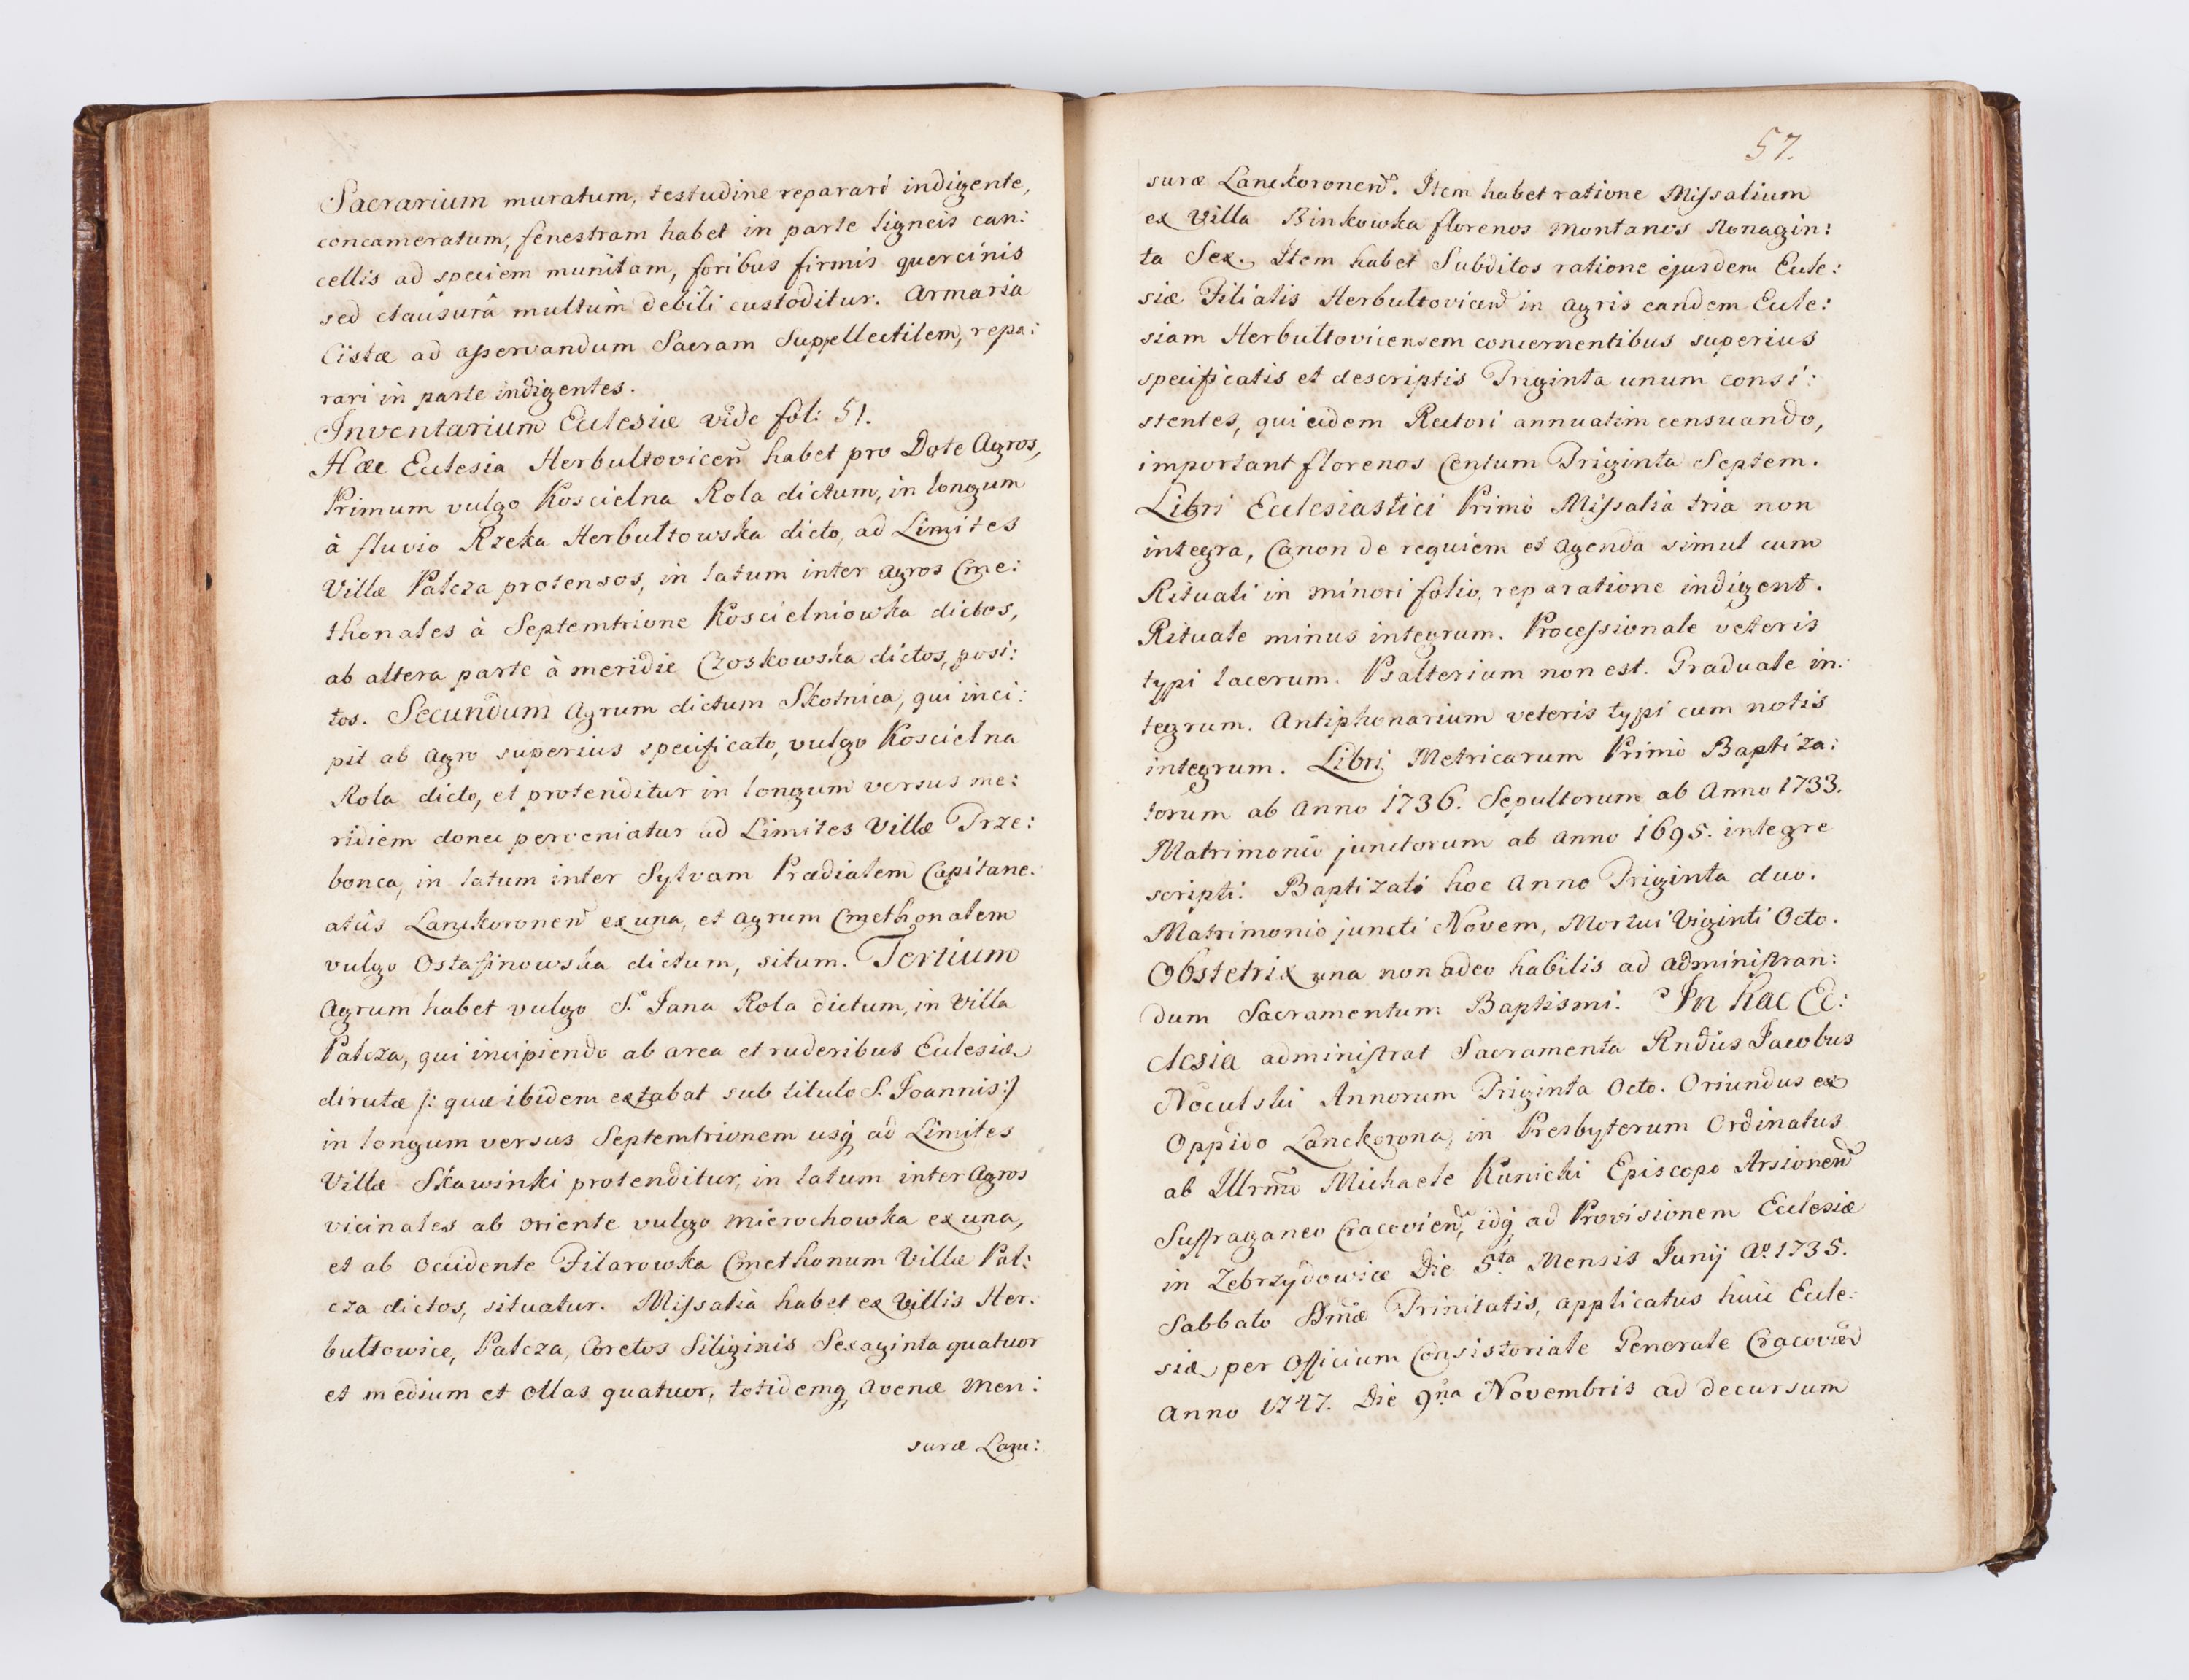 Sacrarium muratum, testudine reparari indigente,
concameratum, fenestram habet in parte ligneis can:
cellis ad speciem munitam, foribus firmis quercinis
sed clausurâ multùm debili custoditur. Armaria
Cistæ ad asservandum Sacram Suppellectilem, repa:
rari in parte indigentes.
Inventarium Ecclesiæ vide fol: 51.
Hæc Ecclesia Herbultovicen̄ habet pro Dote Agros,
Primum vulgo Koscielna Rola dictum, in longum
à fluvio Rzeka Herbultowska dicto, ad Limites
Villæ Palcza protensos, in latum inter agros Cme:
thonales à Septemtrione Koscielniowka dictos,
ab altera parte à meridie Czoskowska dictos, posi:
tos. Secundum Agrum dictum Skotnica, qui inci:
pit ab Agro superius specificato, vulgo Koscielna
Rola dicto, et protenditur in longum versus me:
ridiem donec perveniatur ad Limites Villæ Trze:
bonca, in latum inter Sylvam Prædialem Capitane:
atûs Lanckoronen̄ ex una, et agrum Cmethonalem
vulgo Ostafinowska dictum, situm. Tertium
Agrum habet vulgo S.º Jana Rola dictum, in Villa
Palcza, qui incipiendo ab area et ruderibus Ecclesiæ
dirutæ /: quæ ibidem extabat sub titulo S. Joannis:/
in longum versus Septemtrionem usq́ ad Limites
Villæ Skawinki protenditur, in latum inter Agros
vicinales ab oriente vulgo Mierochowka ex una,
et ab occidente Filarowka Cmethonum Villæ Pal:
cza dictos, situatur. Missalia habet ex Villis Her:
bultowice, Palcza, Coretos Siliginis Sexaginta quatuor
et medium et ollas quatuor, totidemq́ avenæ Men:
suræ Lanc:
57.
suræ Lanckoronen̄. Item habet ratione Missalium
ex Villa Binkowka florenos montanos Nonagin:
ta Sex. Item habet Subditos ratione ejusdem Eccle:
siæ Filialis Herbultovicen̄ in agris eandem Eccle:
siam Herbultovicensem concernentibus superius
specificatis et descriptis Triginta unum consi:
stentes, qui eidem Rectori annuatim censuando,
important florenos Centum Triginta Septem.
Libri Ecclesiastici Primò Missalia tria non
integra, Canon de requiem et Agenda simul cum
Rituali in minori folio, reparatione indigent.
Rituale minus integrum. Processionale veteris
typi lacerum. Psalterium non est. Graduale in:
tegrum. Antiphonarium veteris typi cum notis
integrum. Libri Metricarum Primò Baptiza:
torum ab Anno 1736. Sepultorum ab Anno 1733.
Matrimonio junctorum ab anno 1695. integre
scripti. Baptizati hoc Anno Triginta duo.
Matrimonio juncti Novem, Mortui Viginti Octo.
Obstetrix una non adeo habilis ad administran:
dum Sacramentum Baptismi. In hac Ec:
clesia administrat Sacramenta Rndūs Jacobus
Noculski Annorum Triginta Octo. Oriundus ex
Oppido Lanckorona, in Presbyterum Ordinatus
ab Illrmō Michaele Kunicki Episcopo Arsionen̄
Suffraganeo Cracovien̄, idq́ ad Provisionem Ecclesiæ
in Zebrzydowice Die 5ta Mensis Junij Aº 1735.
Sabbato Ssmǣ Trinitatis, applicatus huic Eccle:
siæ per Officium Consistoriale Generale Cracovien̄
Anno 1747. Die 9na Novembris ad decursum